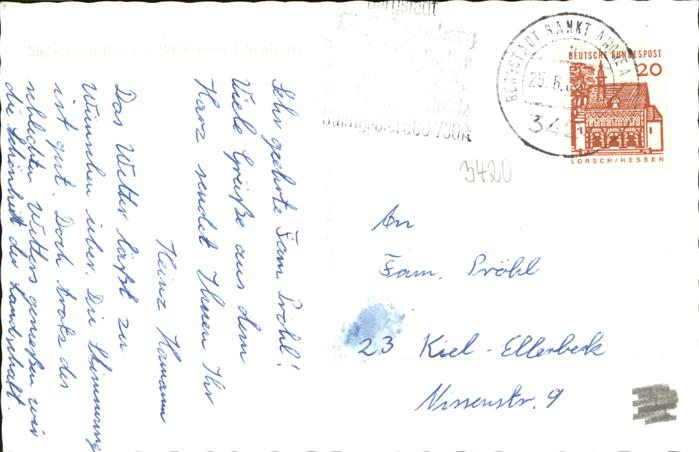 Sehr geehrte Fam. Pröhl!
Viele Grüße aus dem
Harz sendet Ihnen Ihr
Heinz Hamann
Das Wetter läßt zu
Wünschen über. Die Stimmung
ist gut. Doch trotz des
schlechten Wetters genießen wir
die Schönheit der Landschaft.
Bergstadt
BERGSTADT SANKT ANDREA
25.6.
342
DEUTSCHE BUNDESPOST
20
LORSCH/HESSEN
3420
An
Fam. Pröhl
23 Kiel-Ellerbeck
Nissenstr. 9